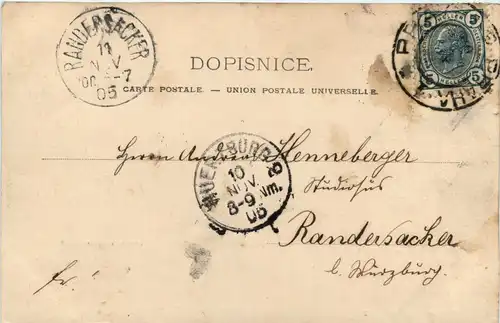 RANDERSACKER
11
NOV
05
5 5
5 5
PRAHA
DOPISNICE.
CARTE POSTALE. — UNION POSTALE UNIVERSELLE.
WUERZBURG 2
10
NOV.
8-9 Nm.
05
Herrn Andreas Henneberger
Studiosus
Randersacker
b. Würzburg.
fr.